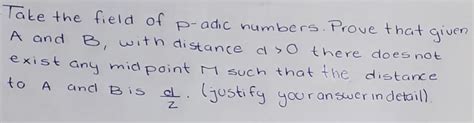 Take the field of p-adic numbers. Prove that given
A and B, with distance d>0 there does not
exist any midpoint M such that the distance
to A and B is d/2. (justify your answer in detail).